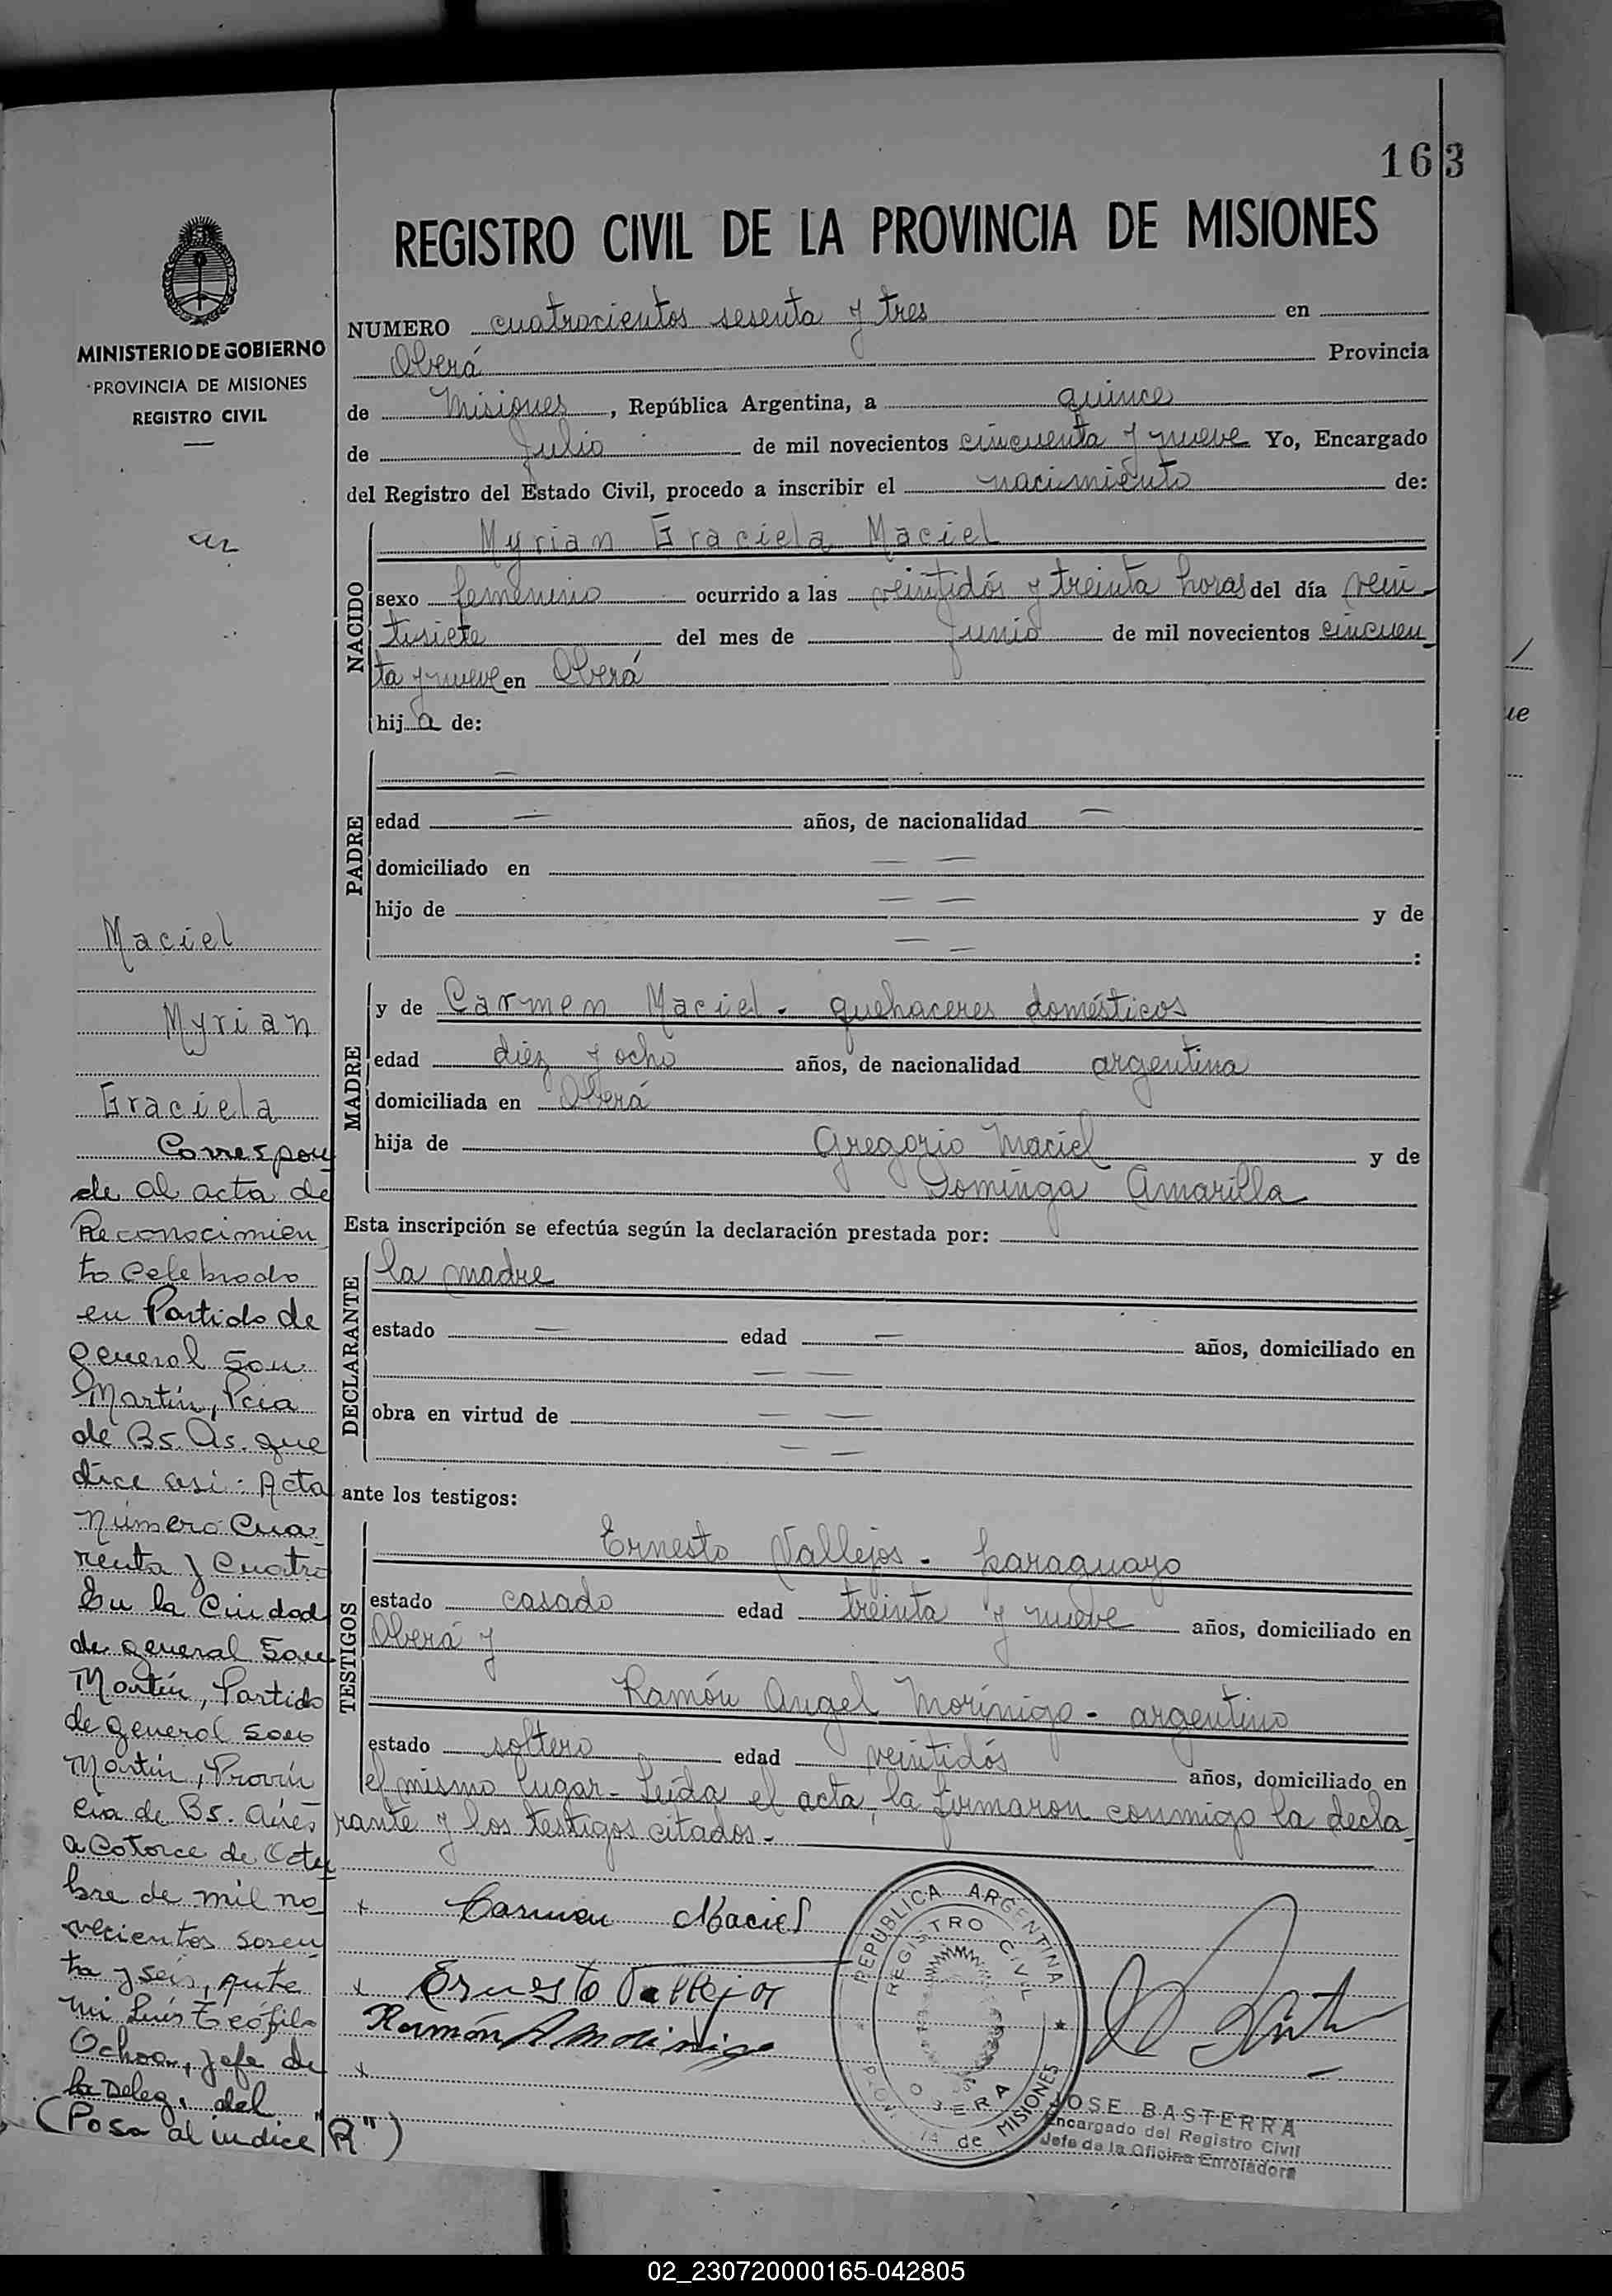 163
REGISTRO CIVIL DE LA PROVINCIA DE MISIONES
MINISTERIO DE GOBIERNO
PROVINCIA DE MISIONES
REGISTRO CIVIL
NUMERO cuatrocientos sesenta y tres en
Oberá Provincia
de Misiones, República Argentina, a quince
de Julio de mil novecientos cincuenta y nueve Yo, Encargado
del Registro del Estado Civil, procedo a inscribir el nacimiento de:
NACIDO
Myrian Graciela Maciel
sexo femenino ocurrido a las veintidós y treinta horas del día vein
tisiete del mes de Junio de mil novecientos cincuen
ta y nueve en Oberá
hija de:
PADRE
—
edad — años, de nacionalidad —
domiciliado en — —
hijo de — — y de
— — :
MADRE
y de Carmen Maciel - quehaceres domésticos
edad diez y ocho años, de nacionalidad argentina
domiciliada en Oberá
hija de Gregorio Maciel y de
Dominga Amarilla
Esta inscripción se efectúa según la declaración prestada por:
DECLARANTE
la madre
estado — edad — años, domiciliado en
— —
obra en virtud de — —
— —
ante los testigos:
TESTIGOS
Ernesto Vallejos - paraguayo
estado casado edad treinta y nueve años, domiciliado en
Oberá y
Ramón Angel Morínigo - argentino
estado soltero edad veintidós años, domiciliado en
el mismo lugar - Leída el acta, la firmaron conmigo la decla
rante y los testigos citados.-
x Carmen Maciel
x Ernesto Vallejos
Ramón A Morinigo
x
REPUBLICA ARGENTINA
REGISTRO CIVIL
OBERA
de MISIONES
JOSE BASTERRA
Encargado del Registro Civil
Jefe de la Oficina Enroladora
Maciel
Myrian
Graciela
Correspon
de al acta de
Reconocimien
to celebrado
en Partido de
general San
Martín, Pcia
de Bs. As. que
dice así: Acta
número cua
renta y cuatro
En la Ciudad
de general San
Martín, Partido
de general San
Martín, Provin
cia de Bs. Aires
a Catorce de Octu
bre de mil no
vecientos sesen
ta y seis, ante
mi Luis Teófilo
Ochoa, jefe de
la Deleg. del
(Pasa al indice "R")
02_230720000165-042805